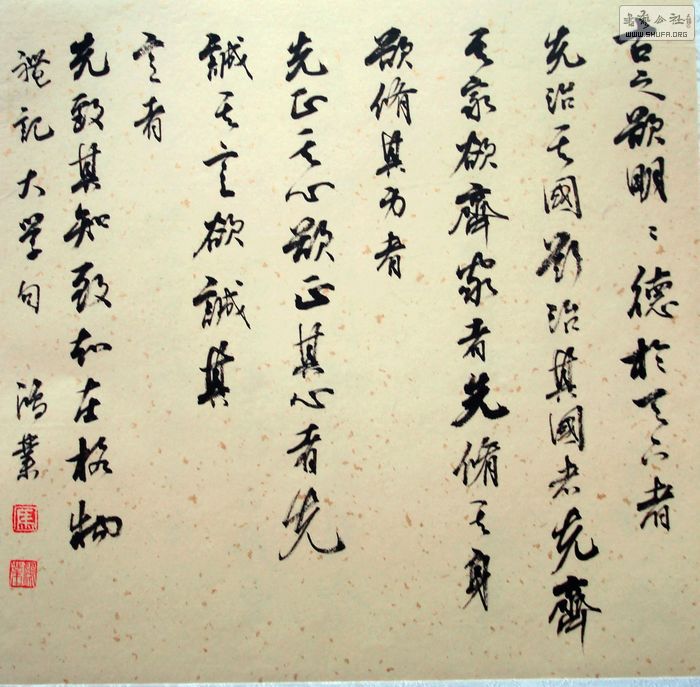 古之欲明〻德於天下者
先治其國欲治其國者先齊
其家欲齊家者先脩其身
欲脩其身者
先正其心欲正其心者先
誠其意欲誠其
意者
先致其知致知在格物
禮記大学句 鴻業
馬
公社
WWW.SHUFA.ORG